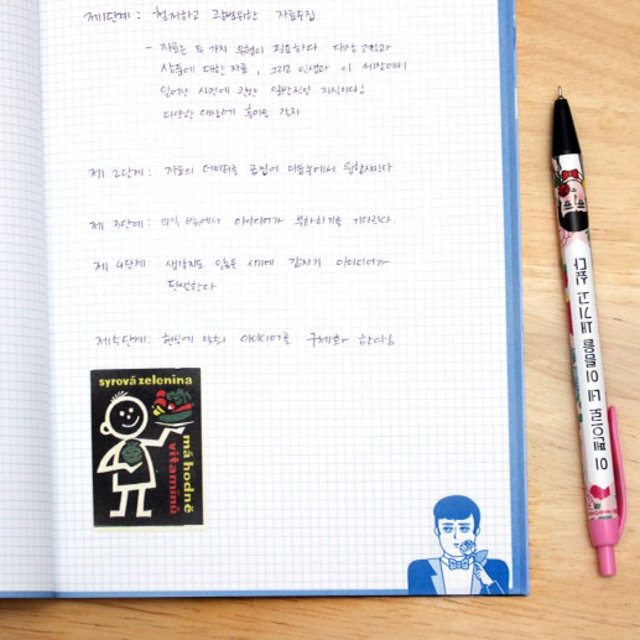 제1단계: 철저하고 광범위한 자료수집
- 자료는 두 가지 유형이 필요하다 대상 고객과
상품에 대한 자료, 그리고 인생과 이 세상에서
일어난 사건에 관한 일반적인 지식이다!
다양한 대상에 흥미를 갖자
제 2단계: 자료의 데이터를 끊임없이 마음속에서 결합시킨다
제 3단계: 의식 밖에서 아이디어가 부화하기를 기다린다.
제 4단계: 생각지도 않은 시기에 갑자기 아이디어가
탄생한다
제5단계: 현실에 맞춰 아이디어를 구체화 한다!
syrová zelenina
má hodně
vitaminů